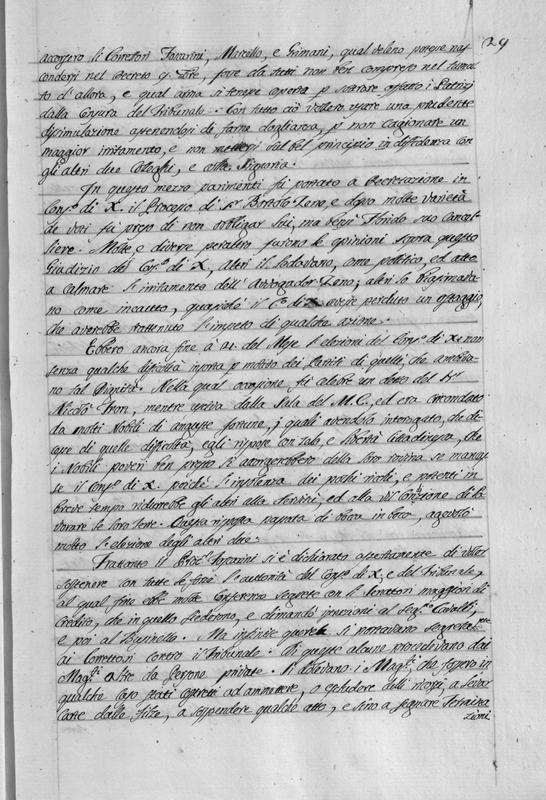 29
accorsero li Corretori Foscarini, Marcello, e Grimani, qual veleno porque nas
condersi nel Decreto
to d'allora, e qual arma si tenesse aperta p sottrare affatto i Patrizj
dalla Censura del Tribunale. Con tutto ciò vollero usare una prudente
dissimulazione astenendosi di farne doglianza, p non cagionare un
maggior irritamento, e non mettersi sul bel principio in diffidenza con
gli altri due Colleghi, e colla Signoria.
In questo mezzo parimenti fù portato a Deliberazione in
Cons.º di X. il Processo di Sr Bortolo Zeno, e dopo molte varietà
de voti fù preso di non obbligar lui, ma bensì suo Cancel=
liere. Molte, e diverse peraltro furono le opinioni sopra questo
Giudizio del Cons.º di X, altri il lodavano, come politico, ed atto
a calmare l'irritamento dell'Avvogador Zeno; altri lo biasimava=
no come incauto, quasiche il C.º di X avesse perduto un ostaggio,
che averebbe trattenuto l'impeto di qualche azione.
Ebbero ancora fine à 21. del Mese l'elezioni del Cons.º di X. non
senza qualche difficoltà insorta p motivo dei Partiti di quelli, che ambiva=
no tal Dignità. Nella qual occasione fù celebre un detto del Kr
Nicolò Tron, mentre usciva dalla Sala del M.C., ed era circondato
da molti Nobili di anguste fortune, i quali avendolo interrogato, che di=
cesse di quelle difficoltà; egli rispose con zelo, e libertà cittadinesca, che
i Nobili poveri ben presto si accorgerebbero della loro rovina se mancas
se il Cons.º di X. perchè l'insolenza dei pochi ricchi, e potenti in
breve tempo ridurrebbe gli altri alla servitù, ed alla vil condizione di la=
vorare le loro terre. Questa risposta passata di bocca in bocca, agevolò
molto l'elezione degli altri due.
Frattanto il Proc.r Foscarini si è dichiarato apertamente di voler
sostenere con tutte le forze l'auttorità del Cons.º di X, e del Tribunale,
al qual fine ebbe molte Conferenze segrete con li Senatori maggiori di
credito, che in quello siederono, e dimandò istruzioni al Seg.rio Cavalli,
e poi al Businello. Ma infinite querele si portavano segretamte
ai Correttori contro il Tribunale. Di queste alcune procedevano dai
Mag.ti altre da persone private. Si dolevano i Mag.ti, che fossero in
qualche caso stati costretti ad ammettere, o escludere delli ricorsi, a levar
carte dalle filze, a sospendere qualche atto, e sino a segnare Terminа
zioni.